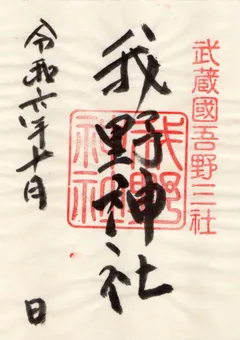 武蔵國吾野三社
我野神社
我野
神社
令和六年十月
日